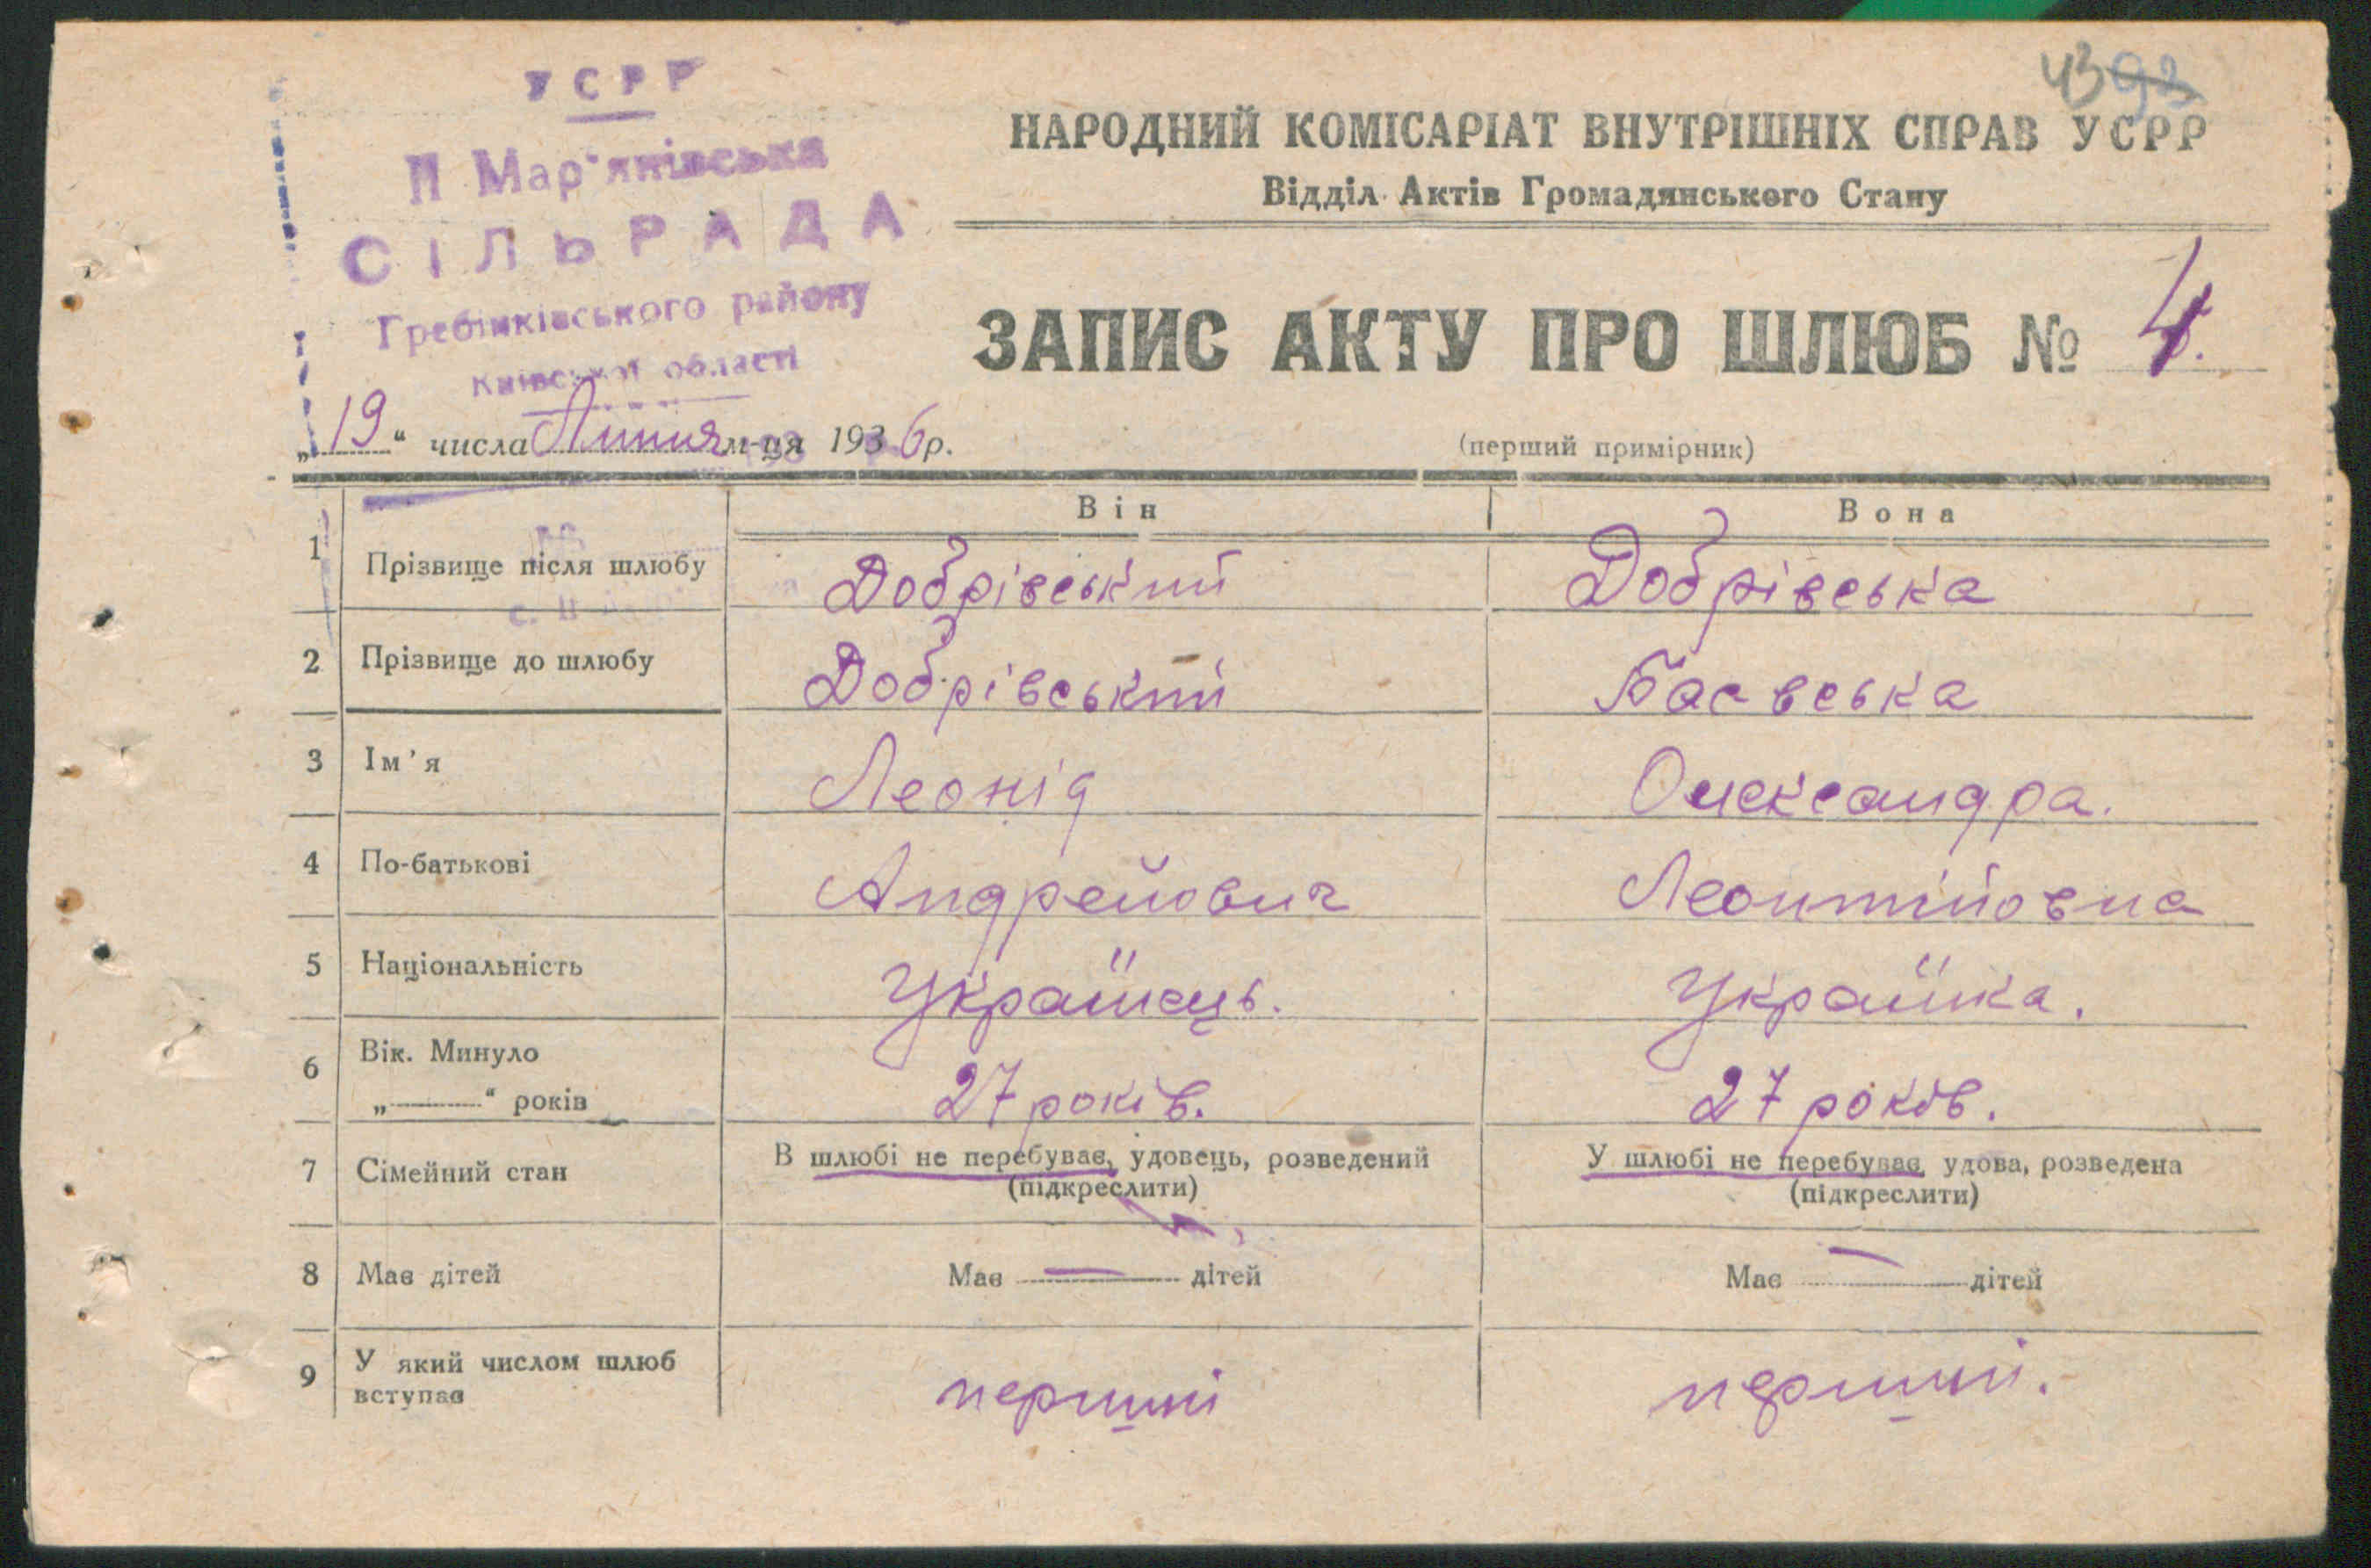 43 93
УСРР
ІІ Мар'янівська
СІЛЬРАДА
Гребінківського району
Київської області
НАРОДНИЙ КОМІСАРІАТ ВНУТРІШНІХ СПРАВ УСРР
Відділ Актів Громадянського Стану
ЗАПИС АКТУ ПРО ШЛЮБ № 4.
„19“ числа Липня м-ця 1936р.
(перший примірник)
Він Вона
1 Прізвище після шлюбу Добрівський Добрівська
2 Прізвище до шлюбу Добрівський Баєвська
3 Ім'я Леонід Олександра.
4 По-батькові Андрейович Леонтійовна
5 Національність Українець. Українка.
6 Вік. Минуло
„——“ років 27 років. 27 років.
7 Сімейний стан В шлюбі не перебуває, удовець, розведений У шлюбі не перебуває, удова, розведена
(підкреслити) (підкреслити)
8 Має дітей Має — дітей Має — дітей
9 У який числом шлюб
вступає перший перший.